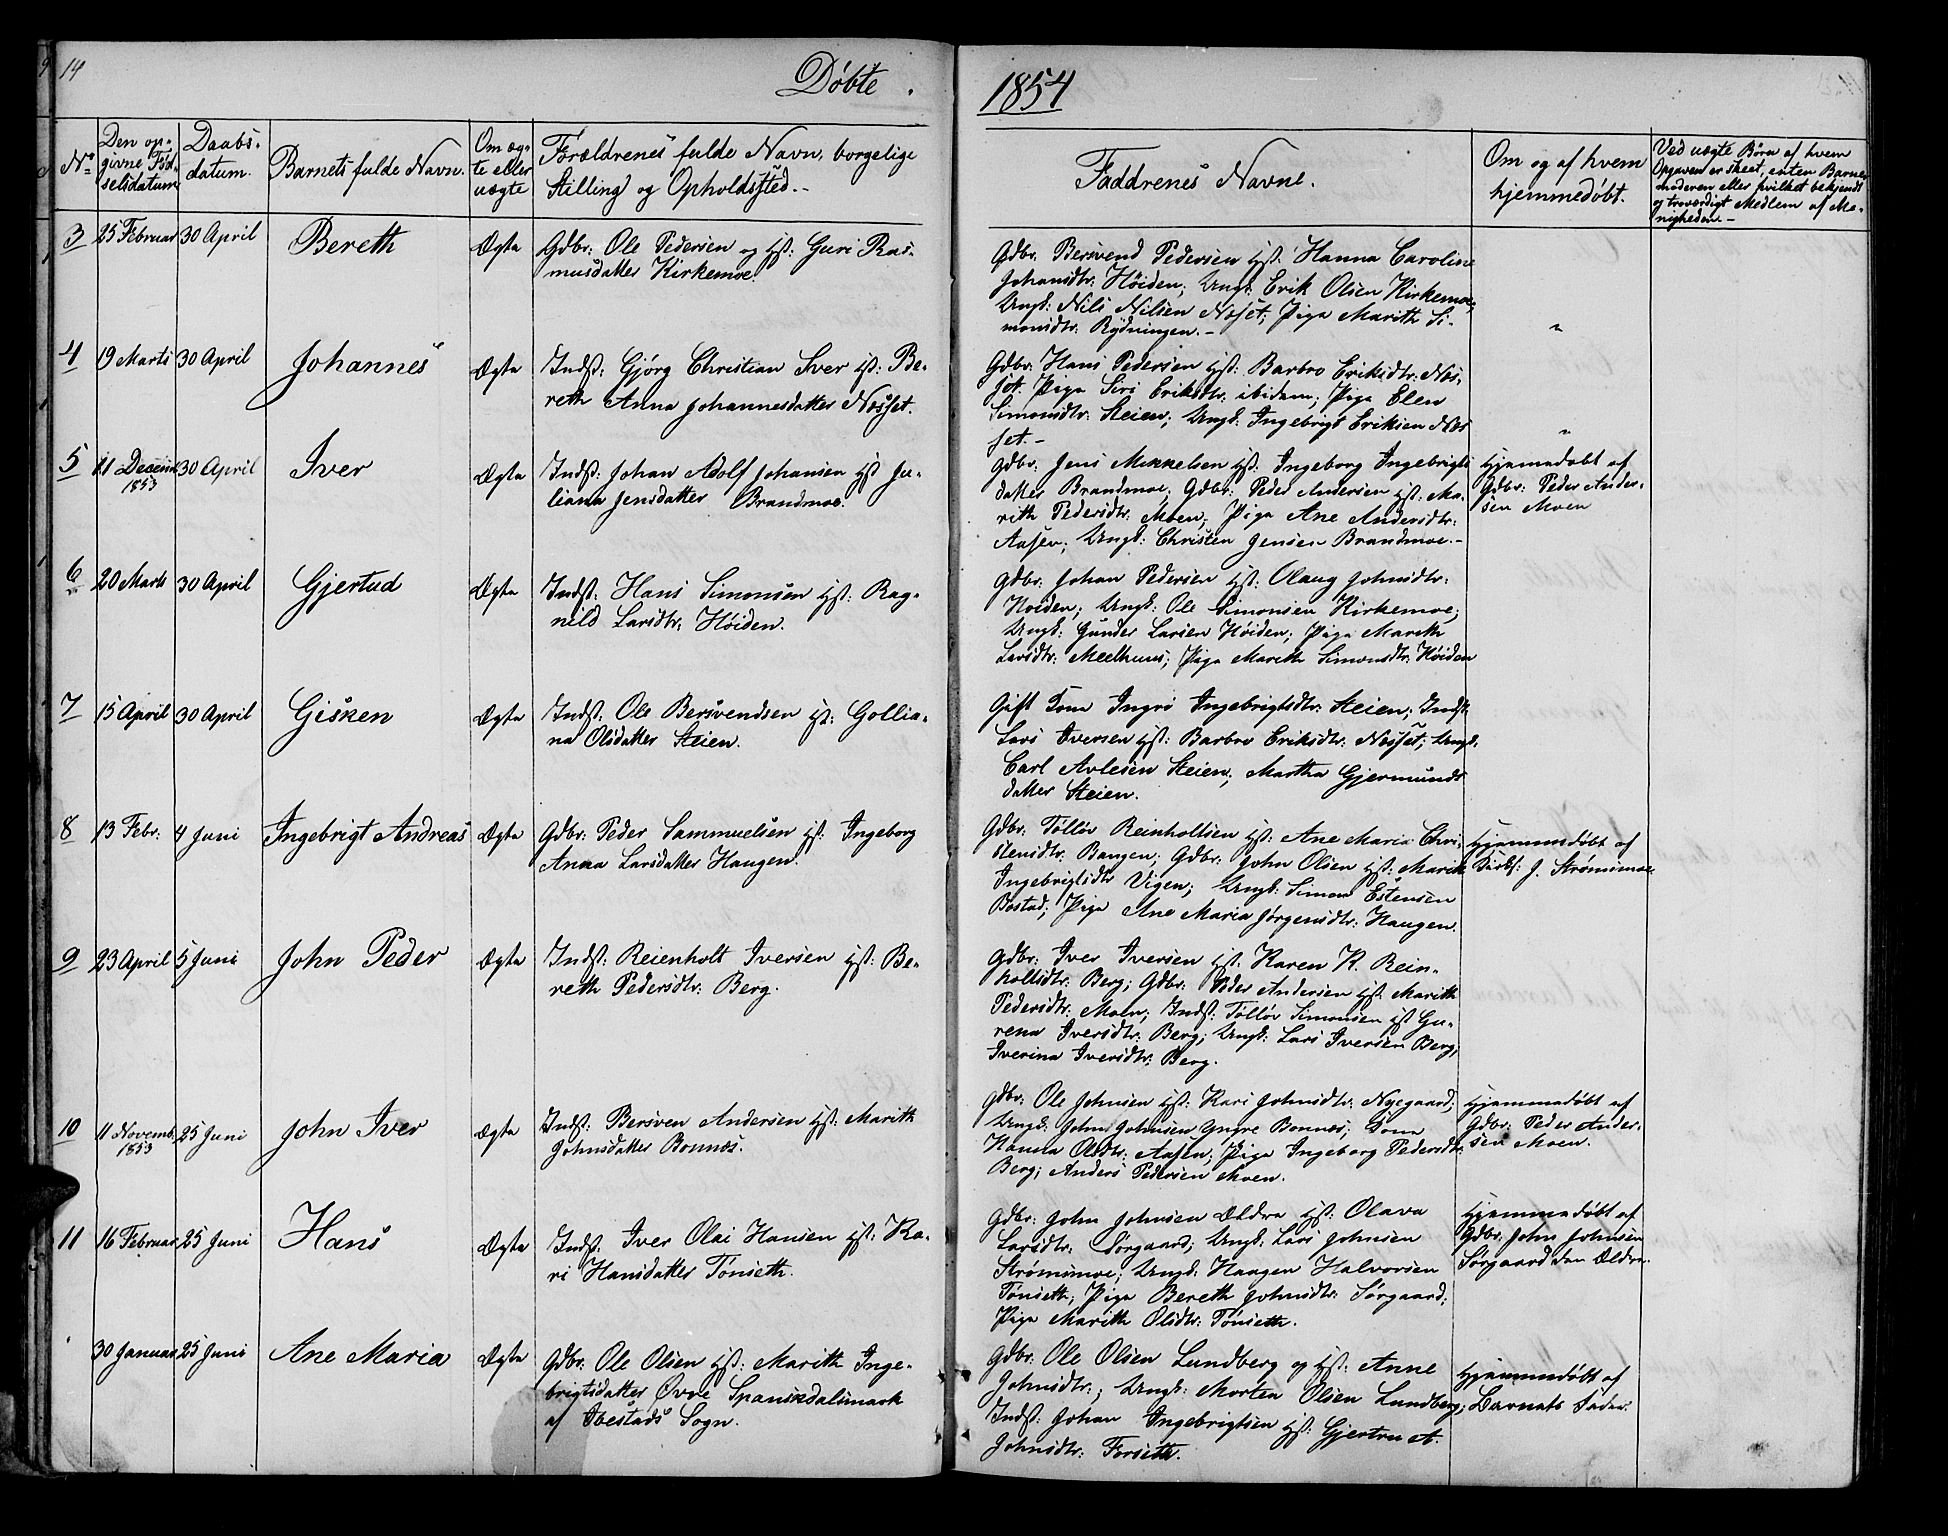 14
Døbte.
1854
No
Den op-
givne Fød-
selsdatum
Daabs-
datum.
Barnets fulde Navn.
Om æg-
te eller
uægte
Forældrenes fulde Navn, borgelige
Stilling og Opholdssted.-
Faddrenes Navne.
Om og af hvem
hjemmedøbt.
Ved uægte Børn af hvem
Opgaven er skeet, enten Barne-
moderen eller hvilket bekjendt
og troværdigt Medlem af Me-
nigheden.-
3
25 Februar
30 April
Bereth
Ægte
Gdbr: Ole Pedersen og Hst: Guri Ras-
musdatter Kirkemoe.
Gdbr: Bersvend Pedersen Hst: Hanna Caroline
Johansdtr: Høiden; Ungk: Erik Olsen Kirkemoe;
Ungk: Nils Nilsen Nosset; Pige Marith Si-
monsdtr: Rydningen.-
"
4
19 Marts
30 April
Johannes
Ægte
Indst: Gjørg Christian Iver Hst: Be-
reth Anna Johannesdatter Nosset.
Gdbr: Hans Pedersen Hst: Barbro Eriksdtr: Nos-
set. Pige Siri Eriksdtr: ibidem; Pige Elen
Simonsdtr: Steien; Ungk: Ingebrigt Eriksen Nos-
set.-
"
5
11 Decemb
1853
30 April
Iver
Ægte
Indst: Johan Adolf Johansen Hst Ju-
liana Jensdatter Brandmoe.
Gdbr: Jens Mikkelsen Hst: Ingeborg Ingebrigts
datter Brandmoe; Gdbr: Peder Andersen Hst: Ma-
rith Pedersdtr: Moen; Pige Ane Andersdtr:
Aasen; Ungk: Christen Jensen Brandmoe.-
Hjemmedøbt af
Gdbr: Peder Ander-
sen Moen
6
20 Marts
30 April
Gjertud
Ægte
Indst: Hans Simonsen Hst: Rag-
nild Larsdtr: Høiden.
Gdbr: Johan Pedersen Hst: Olaug Johnsdtr:
Høiden; Ungk: Ole Simonsen Kirkemoe;
Ungk: Gunder Larsen Høiden; Pige Marith
Larsdtr: Meelhuus; Pige Marith Simonsdtr: Høiden
7
15 April
30 April
Gisken
Ægte
Indst: Ole Bersvendsen Hst: Gollia-
na Olsdatter Steien.
Gift Kone Ingrø Ingebrigtsdtr: Steien; Indst:
Lars Iversen Hst: Barbro Eriksdtr: Nosset; Ungk:
Carl Avlesen Steien; Martha Gjermunds
datter Steien.
8
13 Febr:
4 Juni
Ingebrigt Andreas
Ægte
Gdbr: Peder Sammuelsen Hst: Ingeborg
Anna Larsdatter Haugen.
Gdbr: Tølløv Reinholtsen Hst: Ane Maria Chri-
stensdtr: Bangen; Gdbr: John Olsen Hst: Marith
Ingebrigtsdtr Vigen; Ungk: Simon Estensen
Bostad; Pige Ane Maria Jørgensdtr: Haugen.
Hjemmedøbt af
Kirks: J. Strømsmoe
9
23 April
5 Juni
John Peder
Ægte
Indst: Reienholt Iversen Hst: Be-
reth Pedersdtr: Berg.
Gdbr: Iver Iversen Hst: Karen K. Rein-
holtsdtr: Berg; Gdbr: Peder Andersen Hst: Marith
Pedersdtr: Moen; Indst: Tølløv Simonsen Hst Gu-
rena Iversdtr: Berg; Ungk: Lars Iversen Berg;
Iverina Iversdtr: Berg.
10
11 Novemb.
1853
25 Juni
John Iver
Ægte
Indst: Bersven Andersen Hst: Marith
Johnsdatter Bonnæs.
Gdbr: Ole Johnsen Hst: Kari Johnsdtr: Nyegaard;
Ungk: John Johnsen yngre Bonnæs; Kone
Hanna Olsdtr: Aasen; Pige Ingeborg Pedersdtr:
Berg; Anders Pedersen Moen.
Hjemmedøbt af
Gdbr: Peder Ander-
sen Moen.
11
16 Februar
25 Juni
Hans
Ægte
Indst: Iver Olai Hansen Hst: Ka-
ri Hansdatter Tønseth.
Gdbr: John Johnsen Ældre Hst: Olava
Larsdtr: Sørgaard; Ungk: Lars Johnsen
Strømsmoe; Ungk: Haagen Halvorsen
Tønseth; Pige Bereth Johnsdtr: Sørgaard;
Pige Marith Olsdtr: Tønseth.
Hjemmedøbt af
Gdbr: John Johnsen
Sørgaard den Ældre.
30 Januar
25 Juni
Ane Maria
Ægte
Gdbr: Ole Olsen Hst: Marith Inge-
brigtsdatter Øvre Spansdalsmark
af Ibestads Sogn.
Gdbr: Ole Olsen Lundberg og Hst: Anne
Johnsdtr:; Ungk: Morten Olsen Lundberg;
Indst: Johan Ingebrigtsen Hst: Gjertru A.
Johnsdtr: Forseth.
Hjemmedøbt af
Barnets Fader.